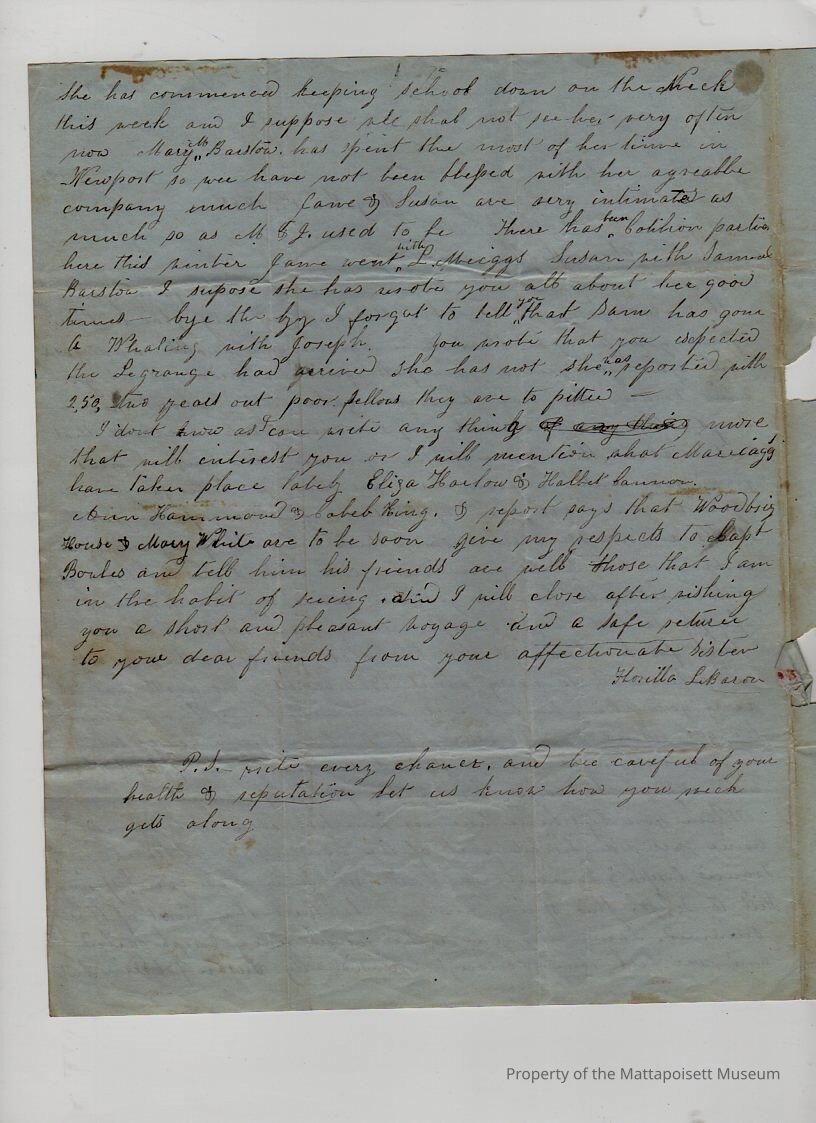 she has commenced keeping school down on the Neck
this week and I suppose we shal not see her very often
now Mary M Barstow has spent the most of her time in
Newport so wee have not been blessed with her agreable
company much Jane & Susan are very intimate as
much so as M & J. used to be There has been Cotihion parties
here this winter Jane went with L. Meiggs Susan with Samuel
Barstow I supose she has wrote you all about her good
times — bye the by I forgot to tell you that Sam has gone
a Whaling with Joseph. You wrote that you expected
the Legrange had arrived she has not she was reported with
2,50, two years out poor fellows they are to pittie —
I dont know as I can write any thing of any thing more
that will interest you or I will mention what Mariages
have taken place lately Eliza Harlow & Halbet Cannon.
Ann Hammond & Caleb King. & report says that
House & Mary White are to be soon give my respects to Capt
Boules and tell him his friends are well those that I am
in the habit of seeing. and I will close after wishing
you a short and pleasant voyage and a safe return
to your dear friends from your affectionate Sister
Florilla LeBaron
P.S. — write every chance, and bee careful of your
health & reputation let us know how you
gets along
Property of the Mattapoisett Museum